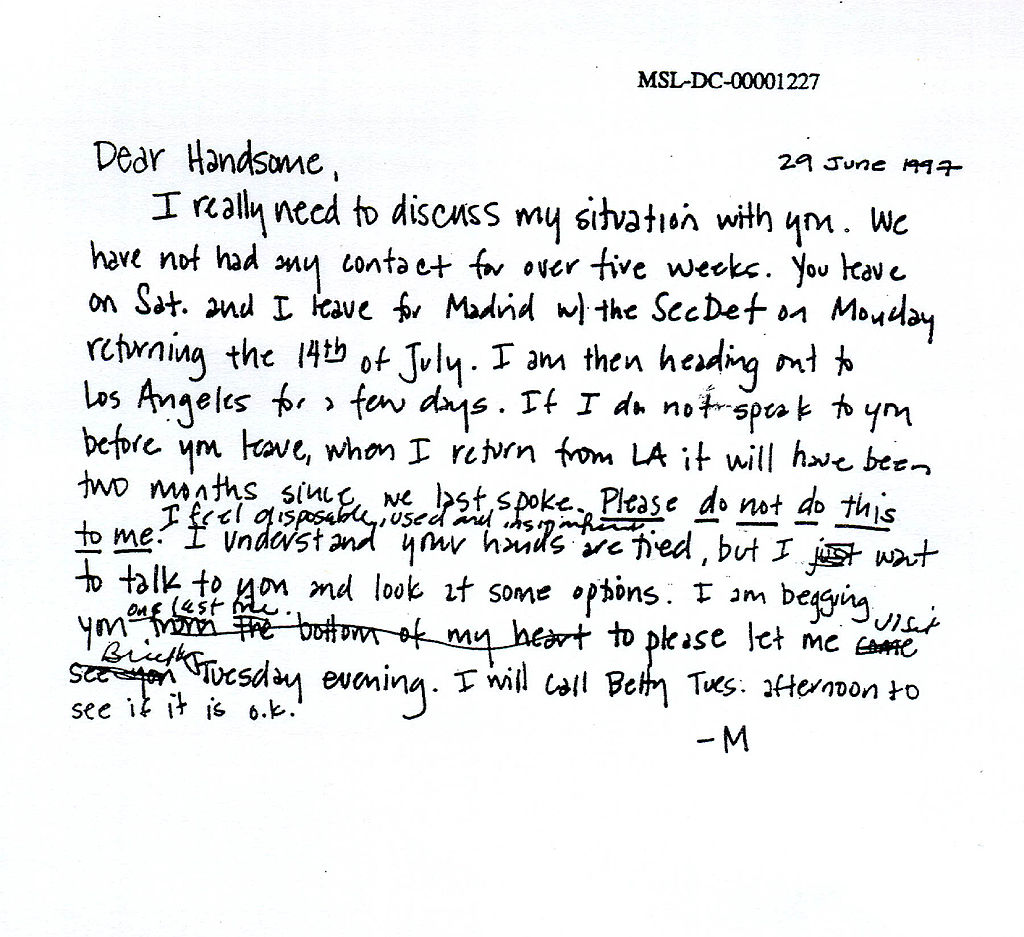 MSL-DC-00001227
Dear Handsome,
29 June 1997
I really need to discuss my situation with you. We
have not had any contact for over five weeks. You leave
on Sat. and I leave for Madrid w/ the SecDef on Monday
returning the 14th of July. I am then heading out to
Los Angeles for a few days. If I do not speak to you
before you leave, when I return from LA it will have been
two months since we last spoke. Please do not do this
I feel disposable, used and insignificant
to me. I understand your hands are tied, but I just want
to talk to you and look at some options. I am begging
one last time. visit
you from the bottom of my heart to please let me come
Briefly
see you Tuesday evening. I will call Betty Tues. afternoon to
see if it is o.k.
-M